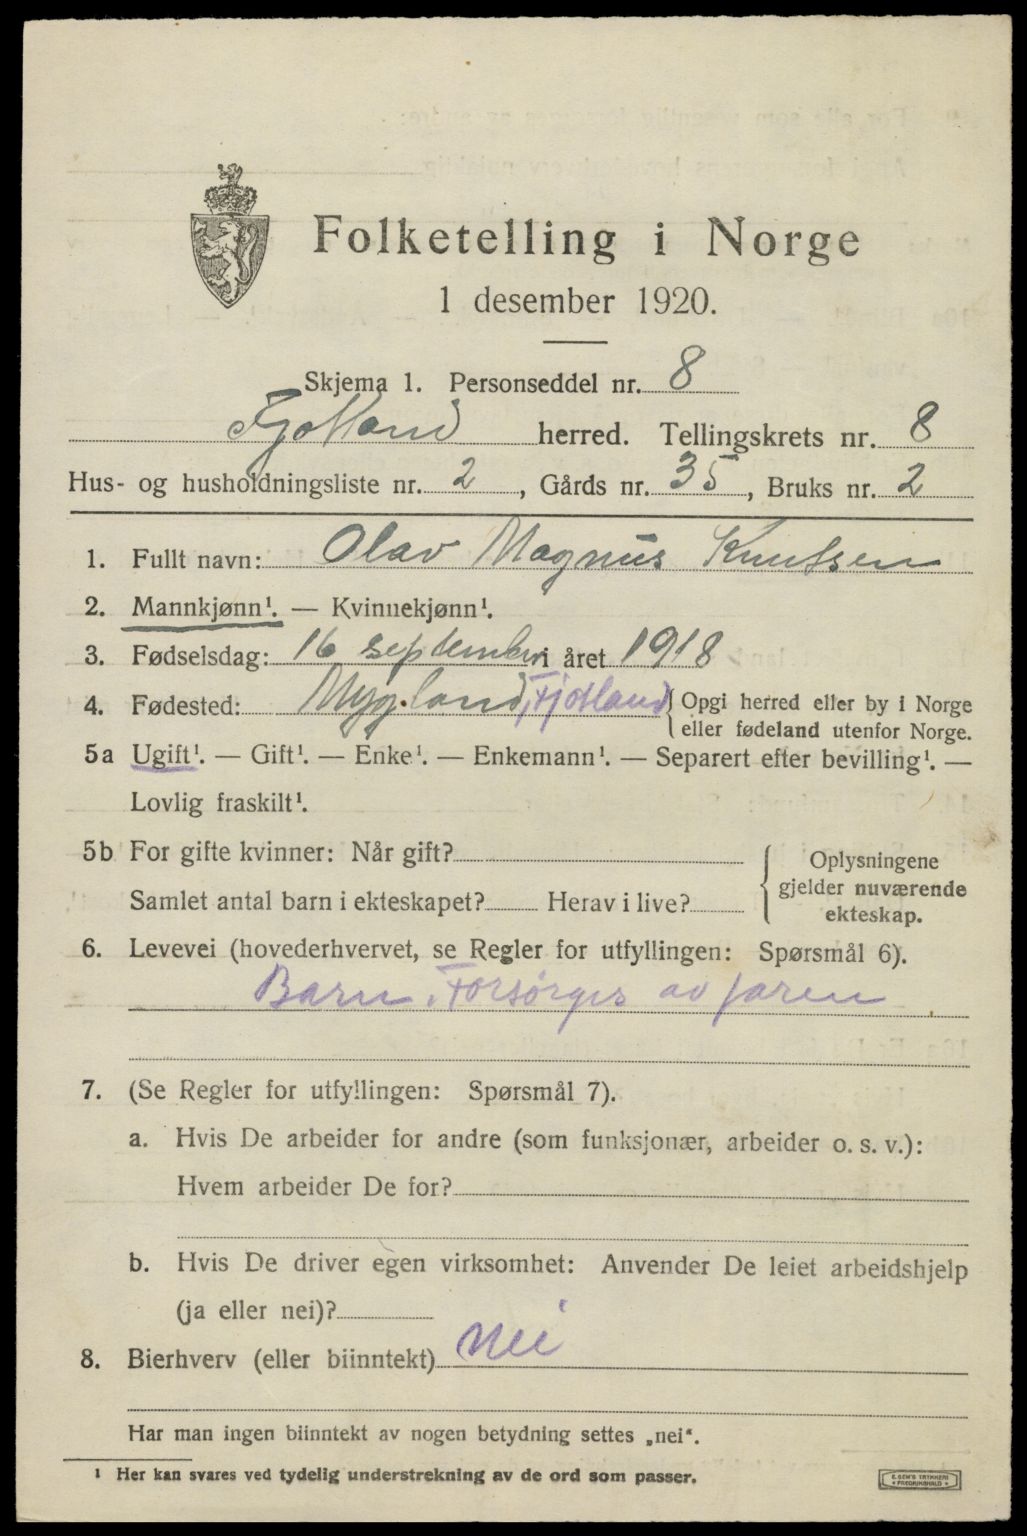 Folketelling i Norge
1 desember 1920.
Skjema 1. Personseddel nr. 8
Fjotland herred. Tellingskrets nr. 8
Hus- og husholdningsliste nr. 2, Gårds nr. 35, Bruks nr. 2
1. Fullt navn: Olav Magnus Knutsen
2. Mannkjønn¹. — Kvinnekjønn¹.
3. Fødselsdag: 16 september i året 1918
4. Fødested: Mygland, Fjotland { Opgi herred eller by i Norge
eller fødeland utenfor Norge.
5a Ugift¹. — Gift¹. — Enke¹. — Enkemann¹. — Separert efter bevilling¹. —
Lovlig fraskilt¹.
5b For gifte kvinner: Når gift?
Samlet antal barn i ekteskapet? Herav i live?
{ Oplysningene
gjelder nuværende
ekteskap.
6. Levevei (hovederhvervet, se Regler for utfyllingen: Spørsmål 6).
Barn. Forsørges av faren
7. (Se Regler for utfyllingen: Spørsmål 7).
a. Hvis De arbeider for andre (som funksjonær, arbeider o. s. v.):
Hvem arbeider De for?
b. Hvis De driver egen virksomhet: Anvender De leiet arbeidshjelp
(ja eller nei)?
8. Bierhverv (eller biinntekt) Nei
Har man ingen biinntekt av nogen betydning settes „nei“.
¹ Her kan svares ved tydelig understrekning av de ord som passer.
E. SEM'S TRYKKERI
FREDRIKSHALD